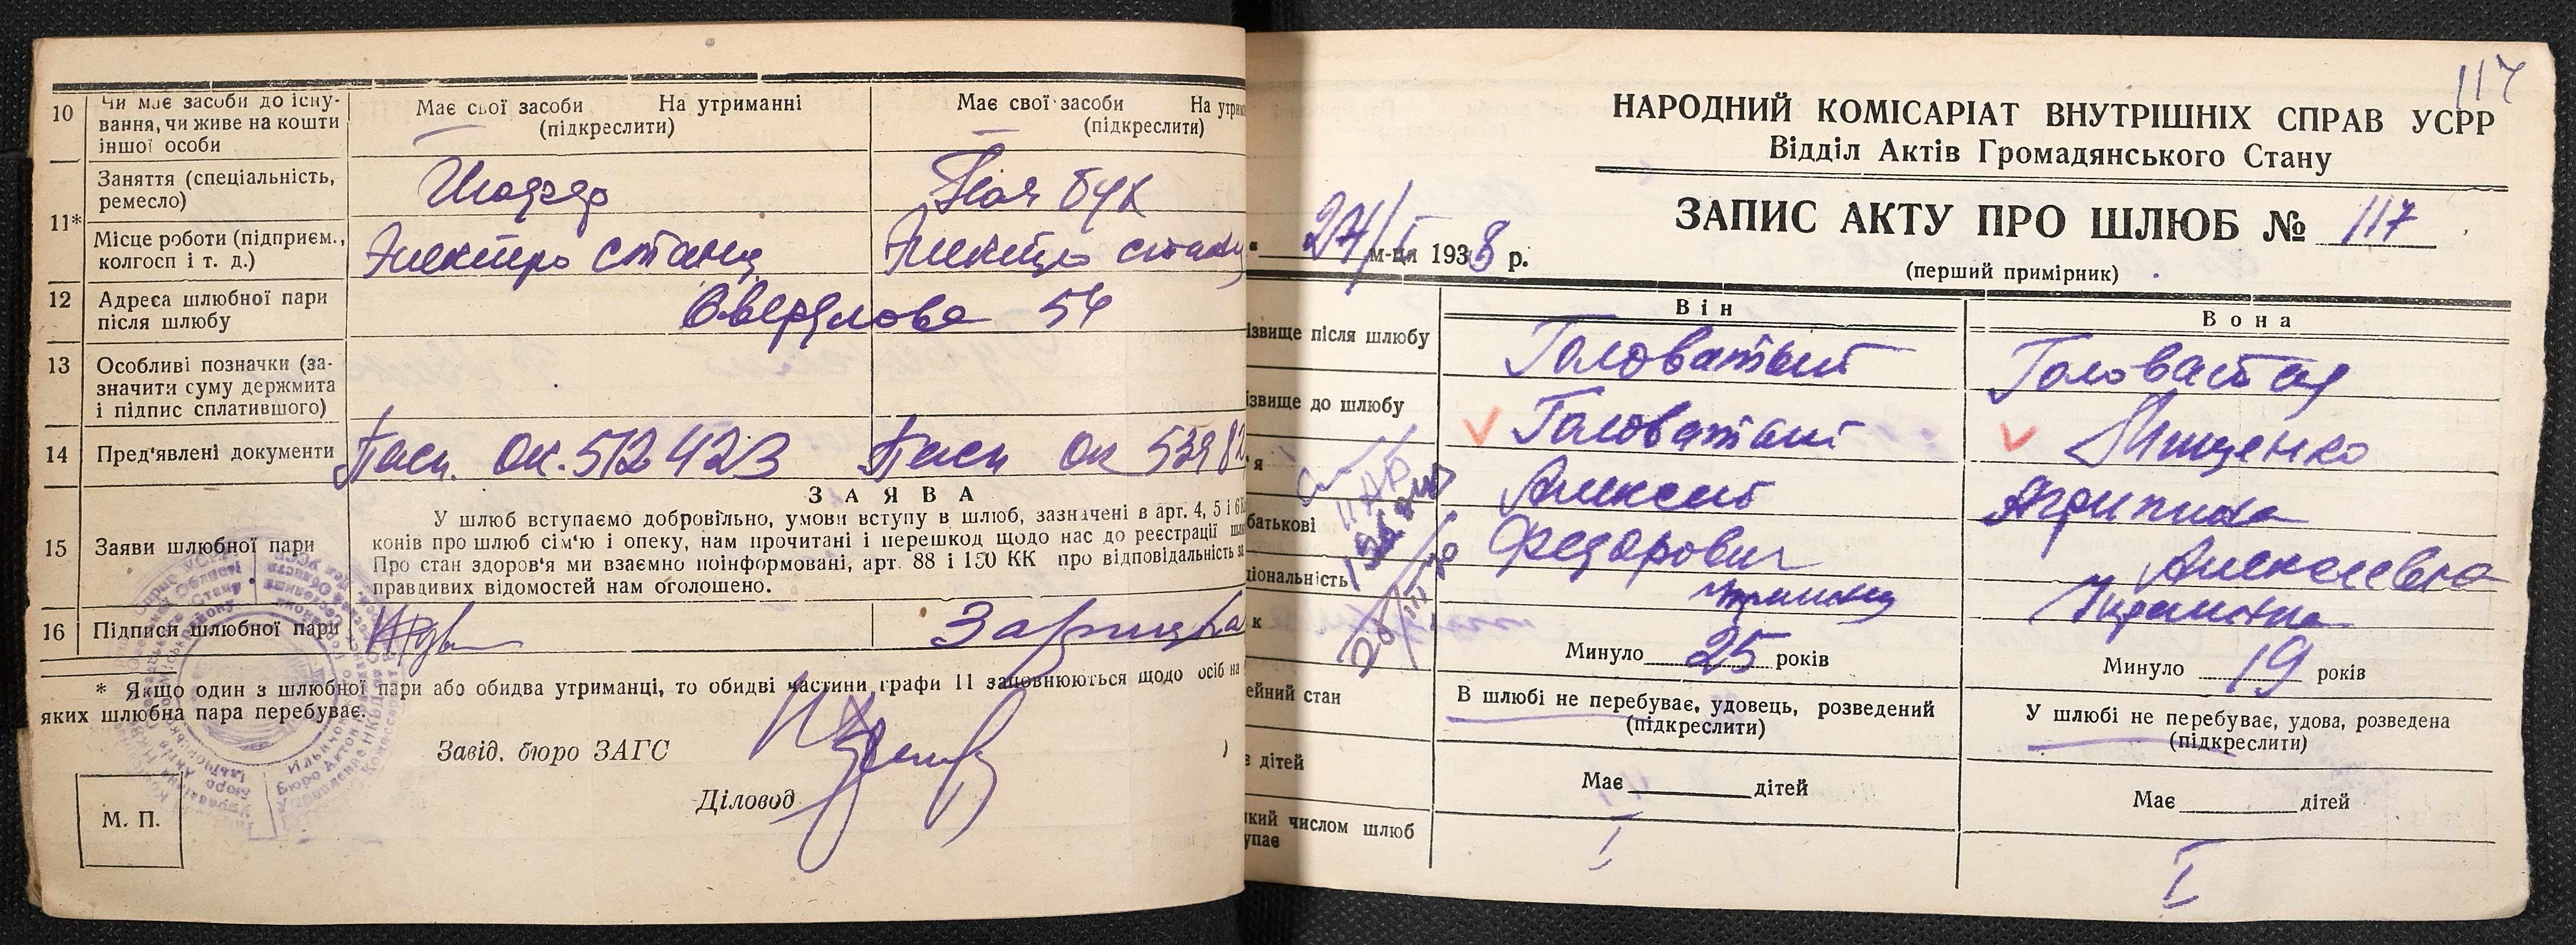 10 Чи має засоби до існу-
вання, чи живе на кошти
іншої особи
Має свої засоби На утриманні
(підкреслити)
Має свої засоби На утрим
(підкреслити)
11*
Заняття (спеціальність,
ремесло)
Шофер
Пом бух
Місце роботи (підприєм.,
колгосп і т. д.)
Электро станц
Электро станц
12 Адреса шлюбної пари
після шлюбу
Свердлова 54
13 Особливі позначки (за-
значити суму держмита
і підпис сплатившого)
14 Пред'явлені документи
Пасп. ОК. 512423 Пасп ОК 53982
ЗАЯВА
15 Заяви шлюбної пари
У шлюб вступаємо добровільно, умови вступу в шлюб, зазначені в арт. 4, 5 і 6
конів про шлюб сім'ю і опеку, нам прочитані і перешкод щодо нас до реєстрації
Про стан здоров'я ми взаємно поінформовані, арт. 88 і 150 КК про відповідальність за
правдивих відомостей нам оголошено.
16 Підписи шлюбної пари
* Якщо один з шлюбної пари або обидва утриманці, то обидві частини графи 11 заповнюються щодо осіб на
яких шлюбна пара перебуває.
Завід. бюро ЗАГС
Діловод
М. П.
117
НАРОДНИЙ КОМІСАРІАТ ВНУТРІШНІХ СПРАВ УСРР
Відділ Актів Громадянського Стану
ЗАПИС АКТУ ПРО ШЛЮБ № 117
(перший примірник)
м-ця 1938 р.
Він
Вона
ізвище після шлюбу
Головатый
Головатая
ізвище до шлюбу
Головатый
Нищенко
'я
Алексей
Агрипина
батькові
Федорович
Алексеевна
ціональність
Украинец
Украинка
к
Минуло 25 років
Минуло 19 років
ейний стан
В шлюбі не перебуває, удовець, розведений
(підкреслити)
У шлюбі не перебуває, удова, розведена
(підкреслити)
в дітей
Має дітей
Має дітей
кий числом шлюб
упає
I
I